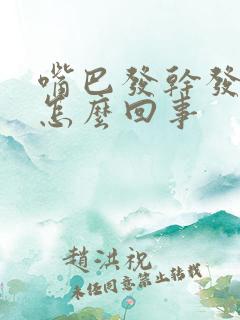 嘴巴發幹發
怎麼回事
趙洪祝
未經同意禁止轉載